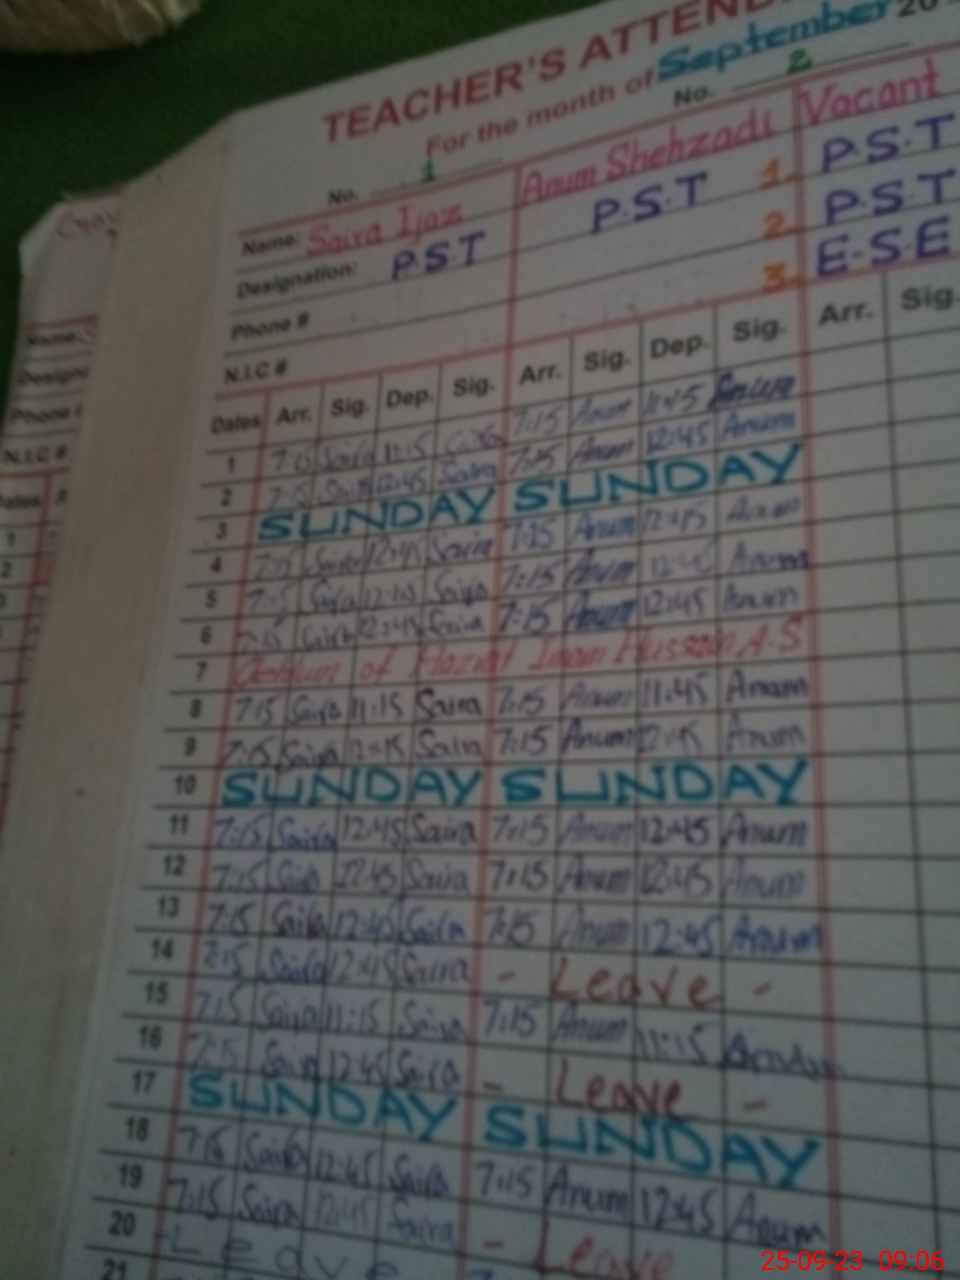 TEACHER'S ATTEND
For the month of September 20
No. 1 No. 2
Name: Saira Ijaz Anum Shehzadi Vacant
Designation: P.S.T P.S.T 1. P.S.T
Phone # 2. P.S.T
N.I.C # 3. E.S.E
Dates Arr. Sig. Dep. Sig. Arr. Sig. Dep. Sig. Arr. Sig.
1 7:15 Saira 11:15 Saira 7:15 Anum 11:45
2 7:15 Saira 12:45 Saira 7:15 Anum 12:45 Anum
3 SUNDAY SUNDAY
4 7:15 Saira 12:45 Saira 7:15 Anum 12:45 Anum
5 7:15 Saira 12:45 Saira 7:15 Anum 12:45 Anum
6 7:15 Saira 12:45 Saira 7:15 Anum 12:45 Anum
7 of Hazrat Imam Hussain A.S
8 7:15 Saira 11:15 Saira 7:15 Anum 11:45 Anum
9 7:15 Saira 12:45 Saira 7:15 Anum 12:45 Anum
10 SUNDAY SUNDAY
11 7:15 Saira 12:45 Saira 7:15 Anum 12:45 Anum
12 7:15 Saira 12:45 Saira 7:15 Anum 12:45 Anum
13 7:15 Saira 12:45 Saira 7:15 Anum 12:45 Anum
14 7:15 Saira 12:45 Saira - Leave -
15 7:15 Saira 11:15 Saira 7:15 Anum 11:15
16 7:15 Saira 12:45 Saira - Leave -
17 SUNDAY SUNDAY
18 7:15 Saira 12:45 Saira 7:15 Anum 12:45 Anum
19 7:15 Saira 12:45 Saira - Leave
20 - Leave
21
Name:
Phone
N.I.C #
1
2
25-09-23 09:06